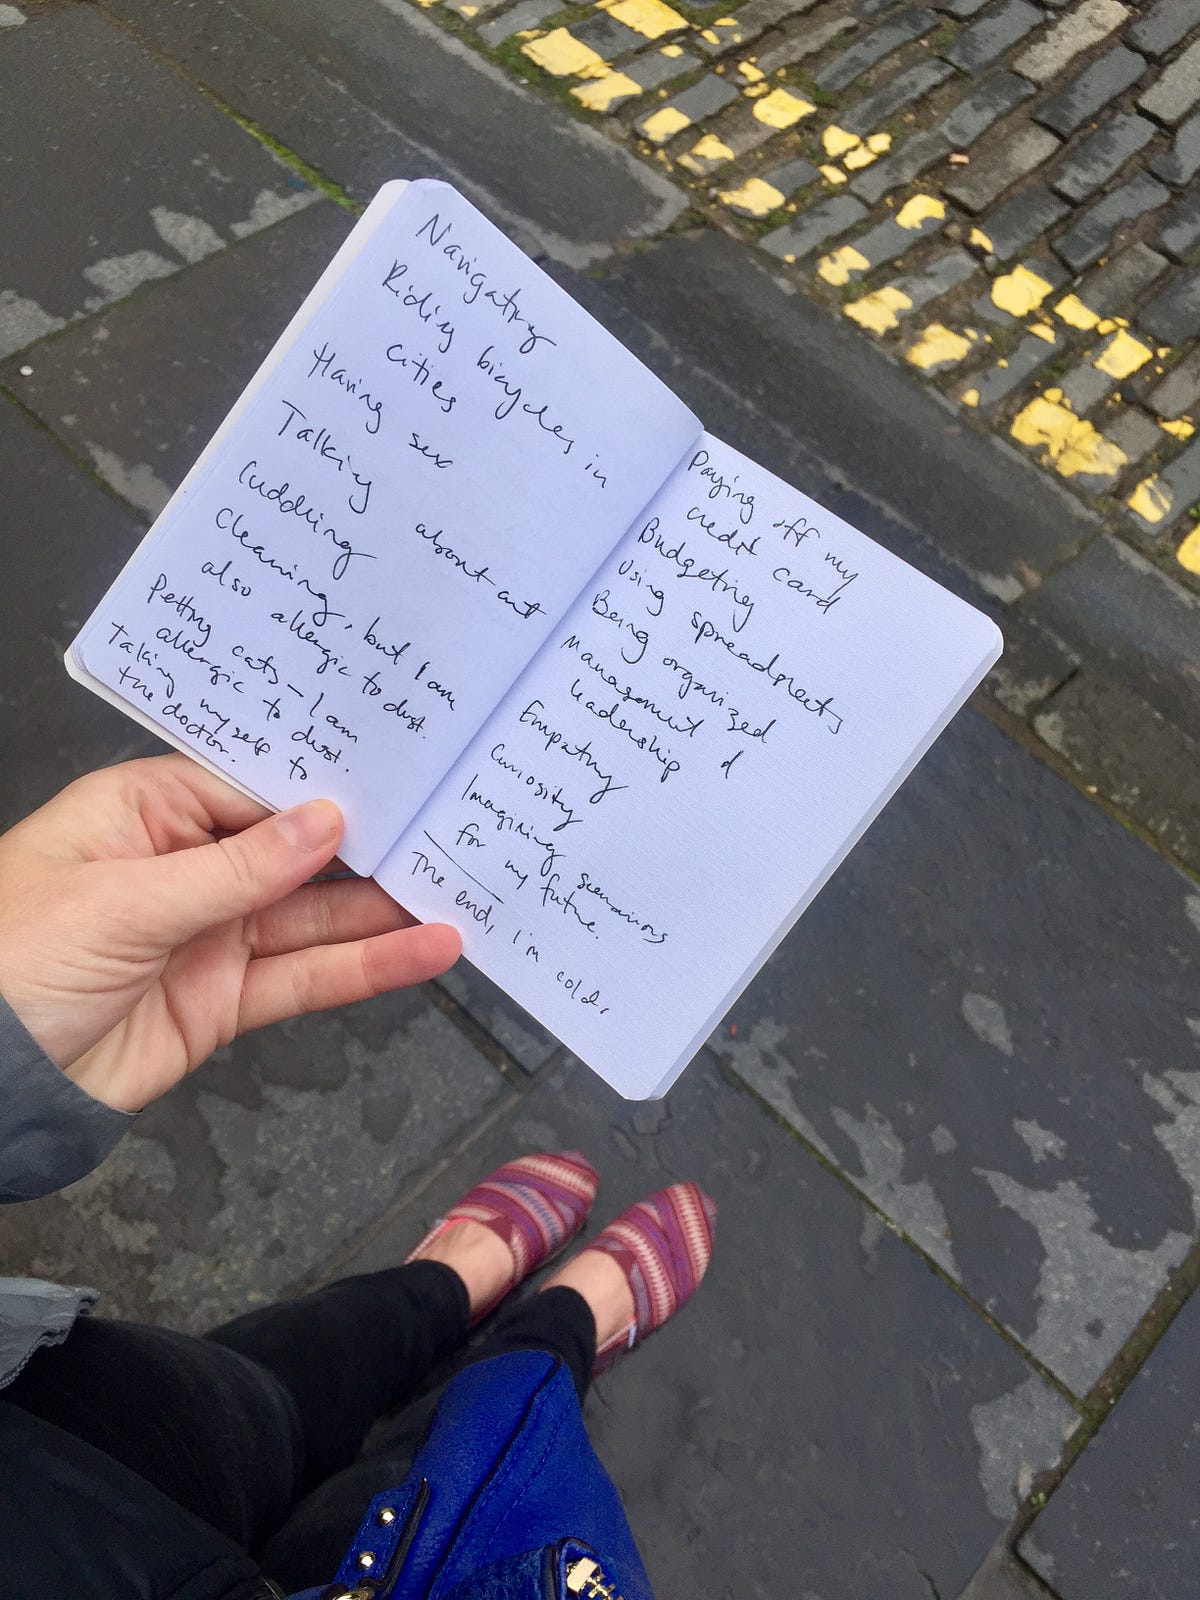 Navigating
Riding bicycles in
cities
Having sex
Talking about art
Cuddling
Cleaning, but I am
also allergic to dust.
Petting cats – I am
allergic to dust.
Taking myself to
the doctor.
Paying off my
credit card
Budgeting
Using spreadsheets
Being organized
Management &
leadership
Empathy
Curiosity
Imagining scenarios
for my future.
The end, I'm cold.